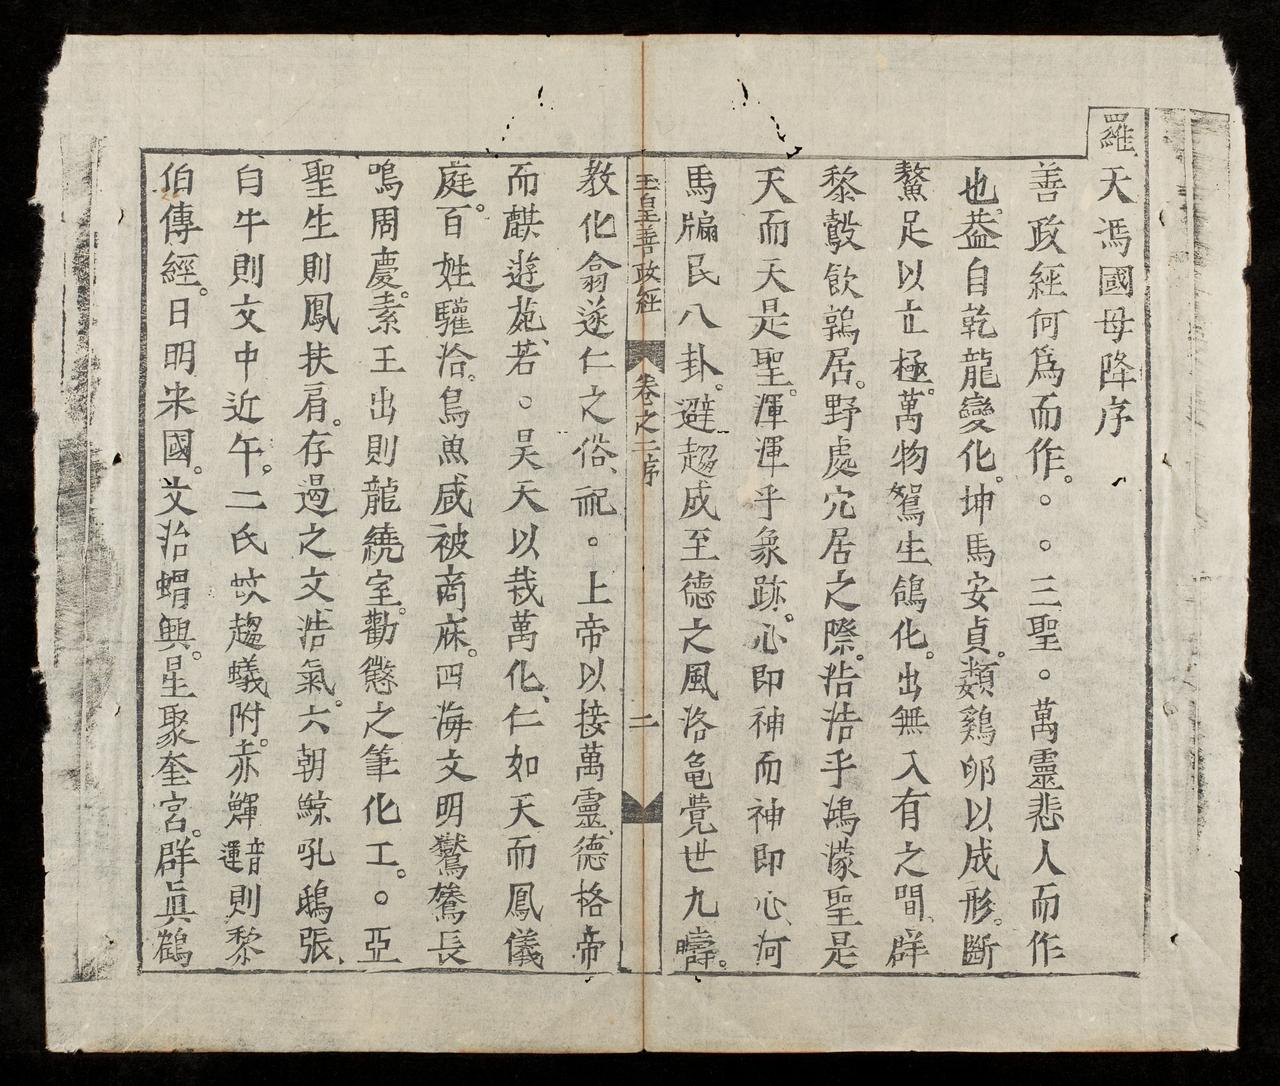 羅天馮國母降序
善政經何爲而作。。。三聖。萬靈悲人而作
也。葢自乾龍變化。坤馬安貞。類鷄卵以成形。斷
鰲足以立極。萬物鴛生鴿化。出無入有之間、群
黎鷇飲鶉居。野處穴居之際。浩浩乎鴻濛聖是
天而天是聖。渾渾乎象跡。心即神而神即心、河
馬牖民八卦。避趨成至德之風洛龜覺世九疇。
玉皇善政經 卷之二序 二
教化翕遂仁之俗、祝。上帝以接萬靈、德格帝
而麒遊苑、若。昊天以栽萬化、仁如天而鳳儀
庭。百姓驩洽。鳥魚咸被商庥。四海文明鸑鷟長
鳴周慶。素王出則龍繞室。勸懲之筆化工。。亞
聖生則鳳扶肩。存過之文浩氣。六朝鯨吼鴟張、
白牛則交中近午。二氏蚊趨蟻附。赤鯶音運則黎
伯傳經。日明宋國。文治蝟興。星聚奎宮。群眞鶴